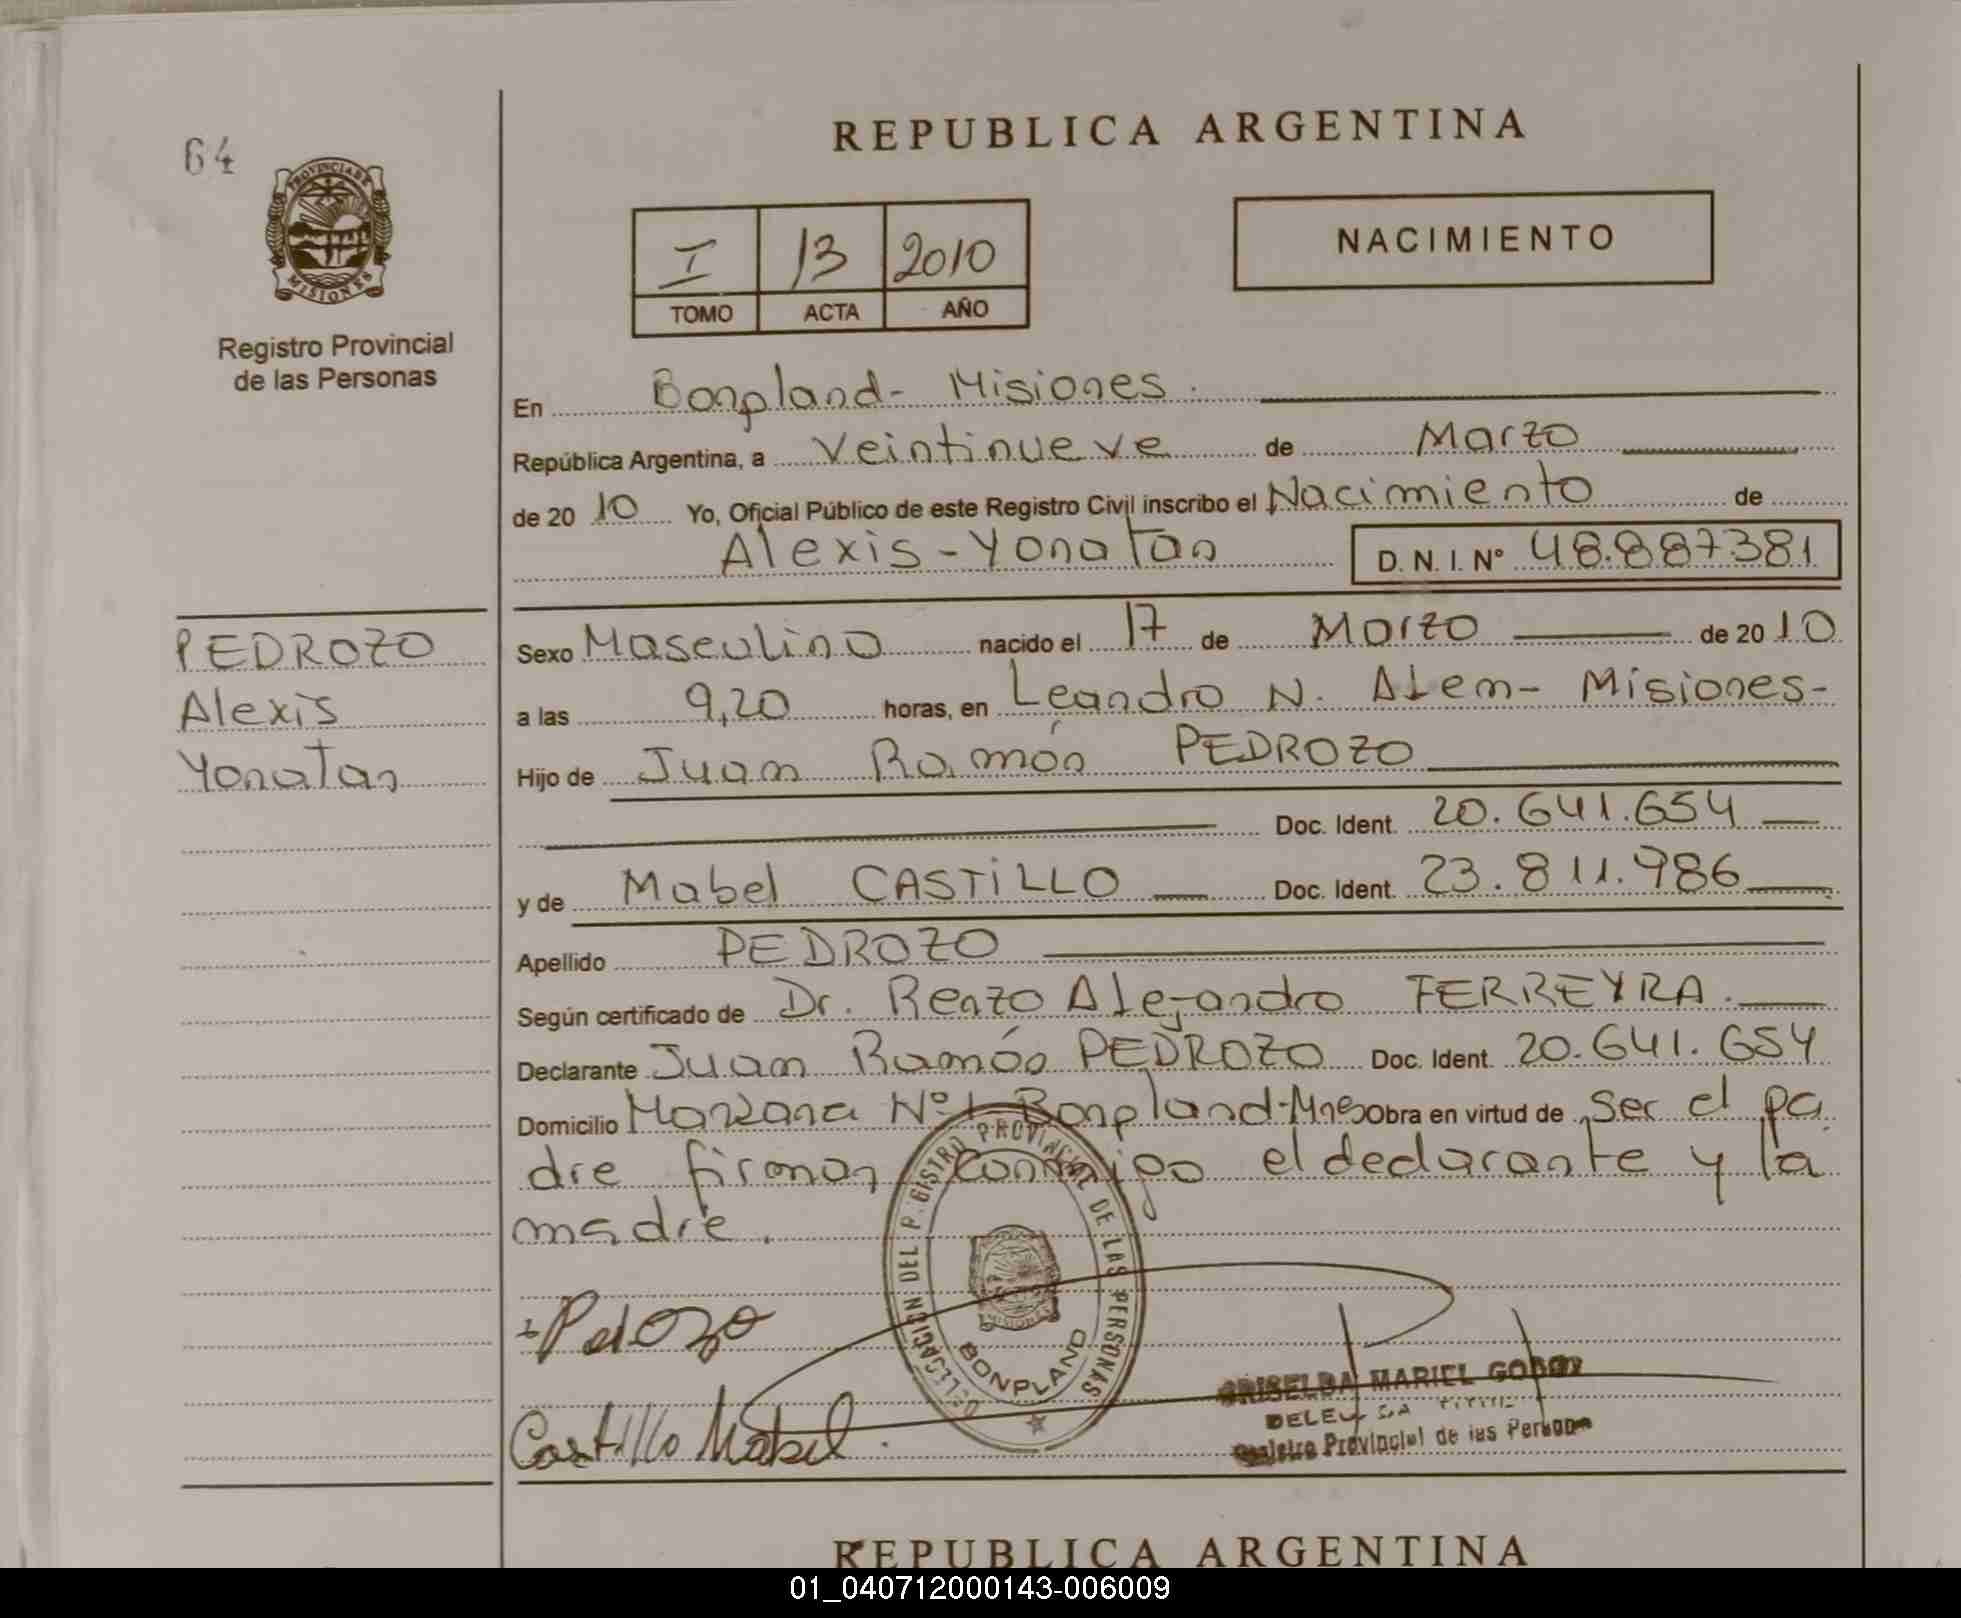 64
PROVINCIA DE
MISIONES
Registro Provincial
de las Personas
REPUBLICA ARGENTINA
I 13 2010
TOMO ACTA AÑO
NACIMIENTO
En Bonpland- Misiones.
República Argentina, a Veintinueve de Marzo
de 20 10 Yo, Oficial Público de este Registro Civil inscribo el Nacimiento de
Alexis-Yonatan D. N. I. N° 48.887381
PEDROZO
Alexis
Yonatan
Sexo Masculino nacido el 17 de Marzo de 20 10
a las 9,20 horas, en Leandro N. Alem- Misiones-
Hijo de Juan Ramón PEDROZO
Doc. Ident. 20.641.654
y de Mabel CASTILLO Doc. Ident. 23.811.986
Apellido PEDROZO
Según certificado de Dr. Renzo Alejandro FERREYRA.
Declarante Juan Ramón PEDROZO Doc. Ident. 20.641.654
Domicilio Manzana Nº1 Bonpland-Mnes Obra en virtud de Ser el pa
dre firman conmigo el declarante y la
madre.
DELEGACION DEL REGISTRO PROVINCIAL DE LAS PERSONAS
MISIONES
BONPLAND
Pedozo
Castillo Mabel.
GRISELDA MARIEL GODOY
Registro Provincial de las Personas
REPUBLICA ARGENTINA
01_040712000143-006009